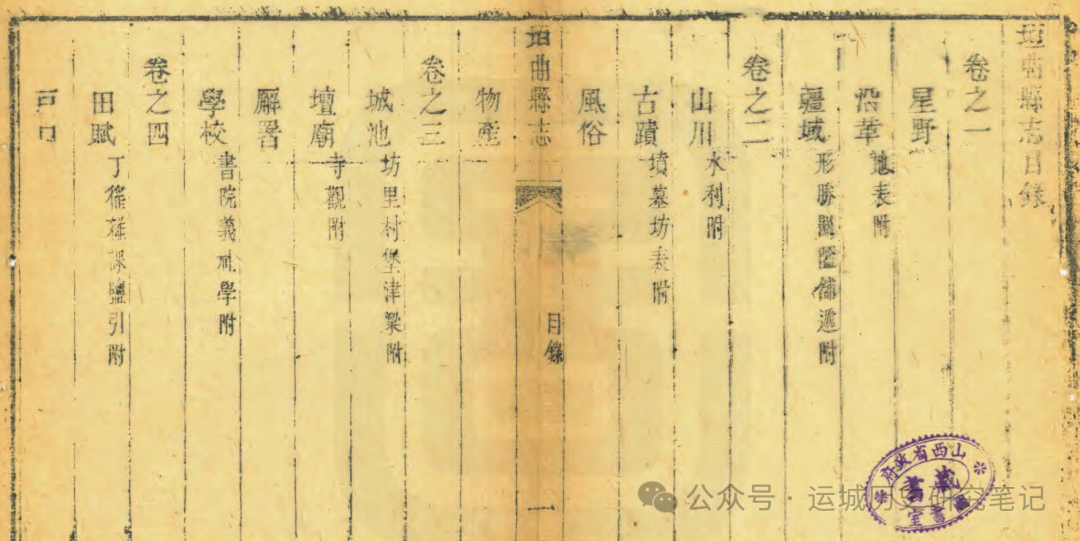 垣曲縣志目錄
卷之一
星野
沿革 地表附
疆域 形勝關隘舖遞附
卷之二
山川 水利附
古蹟 墳墓坊表附
風俗
垣曲縣志 目錄 一
物產
卷之三
城池 坊里村堡津梁附
壇廟 寺觀附
廨署
學校 書院義社學附
卷之四
田賦 丁徭雜課鹽引附
戶口
山西省政府
藏書
公众号·运城历史研究笔记